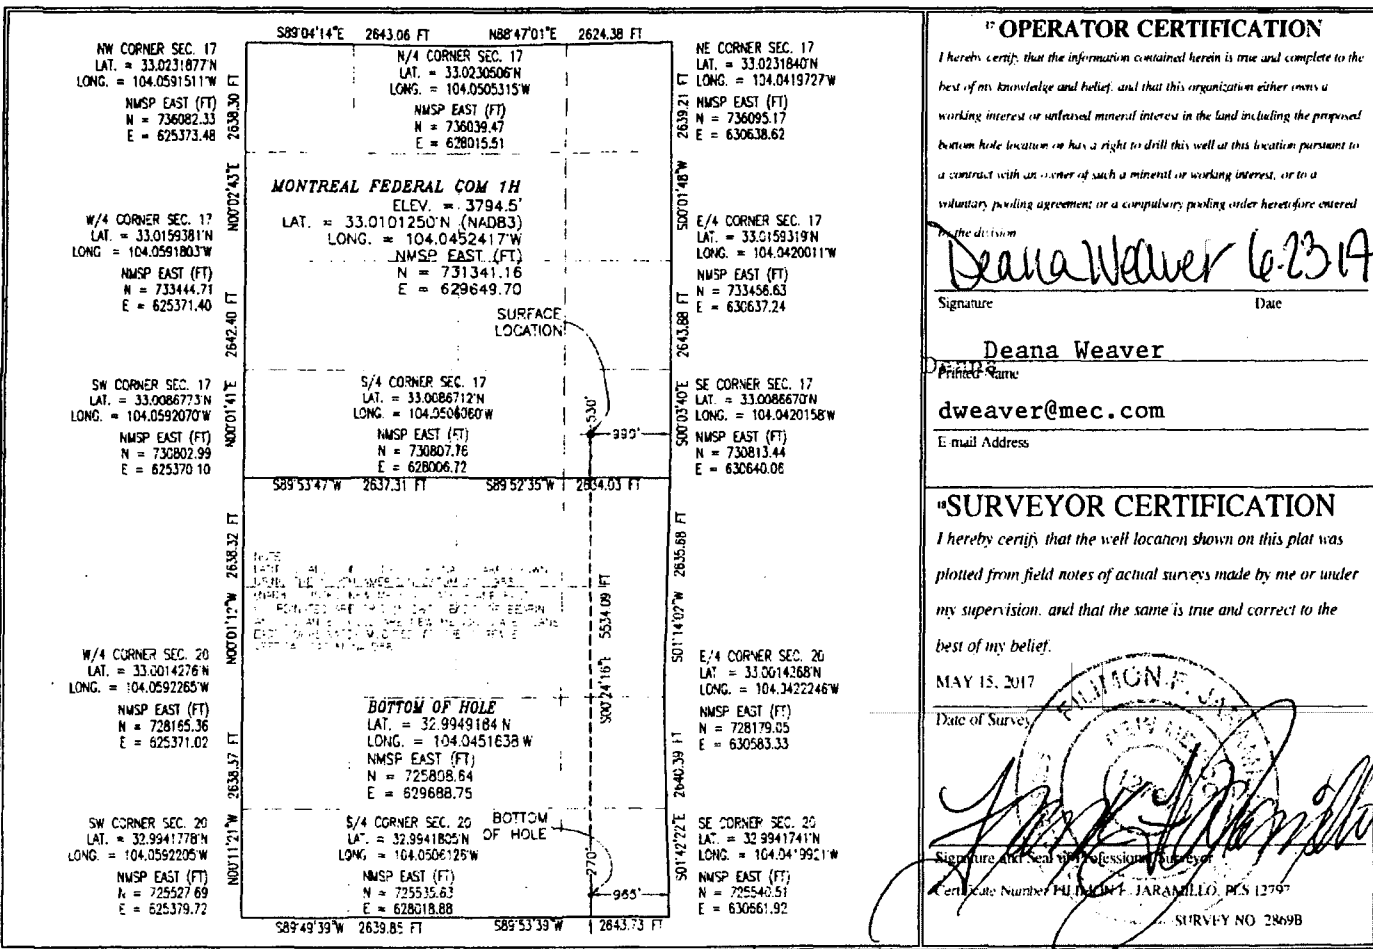 S89°04'14"E 2643.06 FT N88°47'01"E 2624.38 FT
NW CORNER SEC. 17
LAT. = 33.0231877'N
LONG. = 104.0591511'W
NMSP EAST (FT)
N = 736082.33
E = 625373.48
N/4 CORNER SEC. 17
LAT. = 33.0230506'N
LONG. = 104.0505315'W
NMSP EAST (FT)
N = 736039.47
E = 628015.51
NE CORNER SEC. 17
LAT. = 33.0231840'N
LONG. = 104.0419727'W
NMSP EAST (FT)
N = 736095.17
E = 630638.62
2638.30 FT
2639.21 FT
N00°02'43"E
S00°01'48"W
MONTREAL FEDERAL COM 1H
ELEV. = 3794.5'
LAT. = 33.0101250'N (NAD83)
LONG. = 104.0452417'W
NMSP EAST (FT)
N = 731341.16
E = 629649.70
W/4 CORNER SEC. 17
LAT. = 33.0159381'N
LONG. = 104.0591803'W
NMSP EAST (FT)
N = 733444.71
E = 625371.40
E/4 CORNER SEC. 17
LAT. = 33.0159319'N
LONG. = 104.0420011'W
NMSP EAST (FT)
N = 733456.63
E = 630637.24
SURFACE
LOCATION
2642.40 FT
2643.88 FT
N00°01'41"E
S00°03'40"E
SW CORNER SEC. 17
LAT. = 33.0086773'N
LONG. = 104.0592070'W
NMSP EAST (FT)
N = 730802.99
E = 625370.10
S/4 CORNER SEC. 17
LAT. = 33.0086712'N
LONG. = 104.0506060'W
NMSP EAST (FT)
N = 730807.76
E = 628006.72
SE CORNER SEC. 17
LAT. = 33.0086670'N
LONG. = 104.0420158'W
NMSP EAST (FT)
N = 730813.44
E = 630640.06
530'
990'
S89°53'47"W 2637.31 FT S89°52'35"W 2634.03 FT
2638.32 FT
2635.68 FT
NOTE
N00°01'12"W
S00°24'16"E 5534.09 FT
S01°14'02"W
W/4 CORNER SEC. 20
LAT. = 33.0014276'N
LONG. = 104.0592265'W
NMSP EAST (FT)
N = 728165.36
E = 625371.02
E/4 CORNER SEC. 20
LAT = 33.0014268'N
LONG. = 104.0422246'W
NMSP EAST (FT)
N = 728179.05
E = 630583.33
BOTTOM OF HOLE
LAT. = 32.9949184 N
LONG. = 104.0451638 W
NMSP EAST (FT)
N = 725808.64
E = 629688.75
2638.37 FT
2640.39 FT
N00°11'21"W
S01°42'22"E
SW CORNER SEC. 20
LAT. = 32.9941778'N
LONG. = 104.0592205'W
NMSP EAST (FT)
N = 725527.69
E = 625379.72
S/4 CORNER SEC. 20
LAT. = 32.9941805'N
LONG = 104.0506126'W
NMSP EAST (FT)
N = 725535.63
E = 628018.88
BOTTOM
OF HOLE
SE CORNER SEC. 20
LAT. = 32 9941741'N
LONG. = 104.0419921'W
NMSP EAST (FT)
N = 725540.51
E = 630661.92
270'
965'
S89°49'39"W 2639.85 FT S89°53'39"W 2643.73 FT
17 OPERATOR CERTIFICATION
I hereby certify that the information contained herein is true and complete to the
best of my knowledge and belief, and that this organization either owns a
working interest or unleased mineral interest in the land including the proposed
bottom hole location or has a right to drill this well at this location pursuant to
a contract with an owner of such a mineral or working interest, or to a
voluntary pooling agreement or a compulsory pooling order heretofore entered
by the division
Deana Weaver 6-23-17
Signature Date
Deana Weaver
Deana
Printed Name
dweaver@mec.com
E-mail Address
18 SURVEYOR CERTIFICATION
I hereby certify that the well location shown on this plat was
plotted from field notes of actual surveys made by me or under
my supervision, and that the same is true and correct to the
best of my belief.
MAY 15, 2017
Date of Survey
FILIMON F. JARAMILLO
NEW MEXICO
Signature and Seal of Professional Surveyor
Certificate Number FILIMON F. JARAMILLO, PLS 12797
SURVEY NO. 2869B